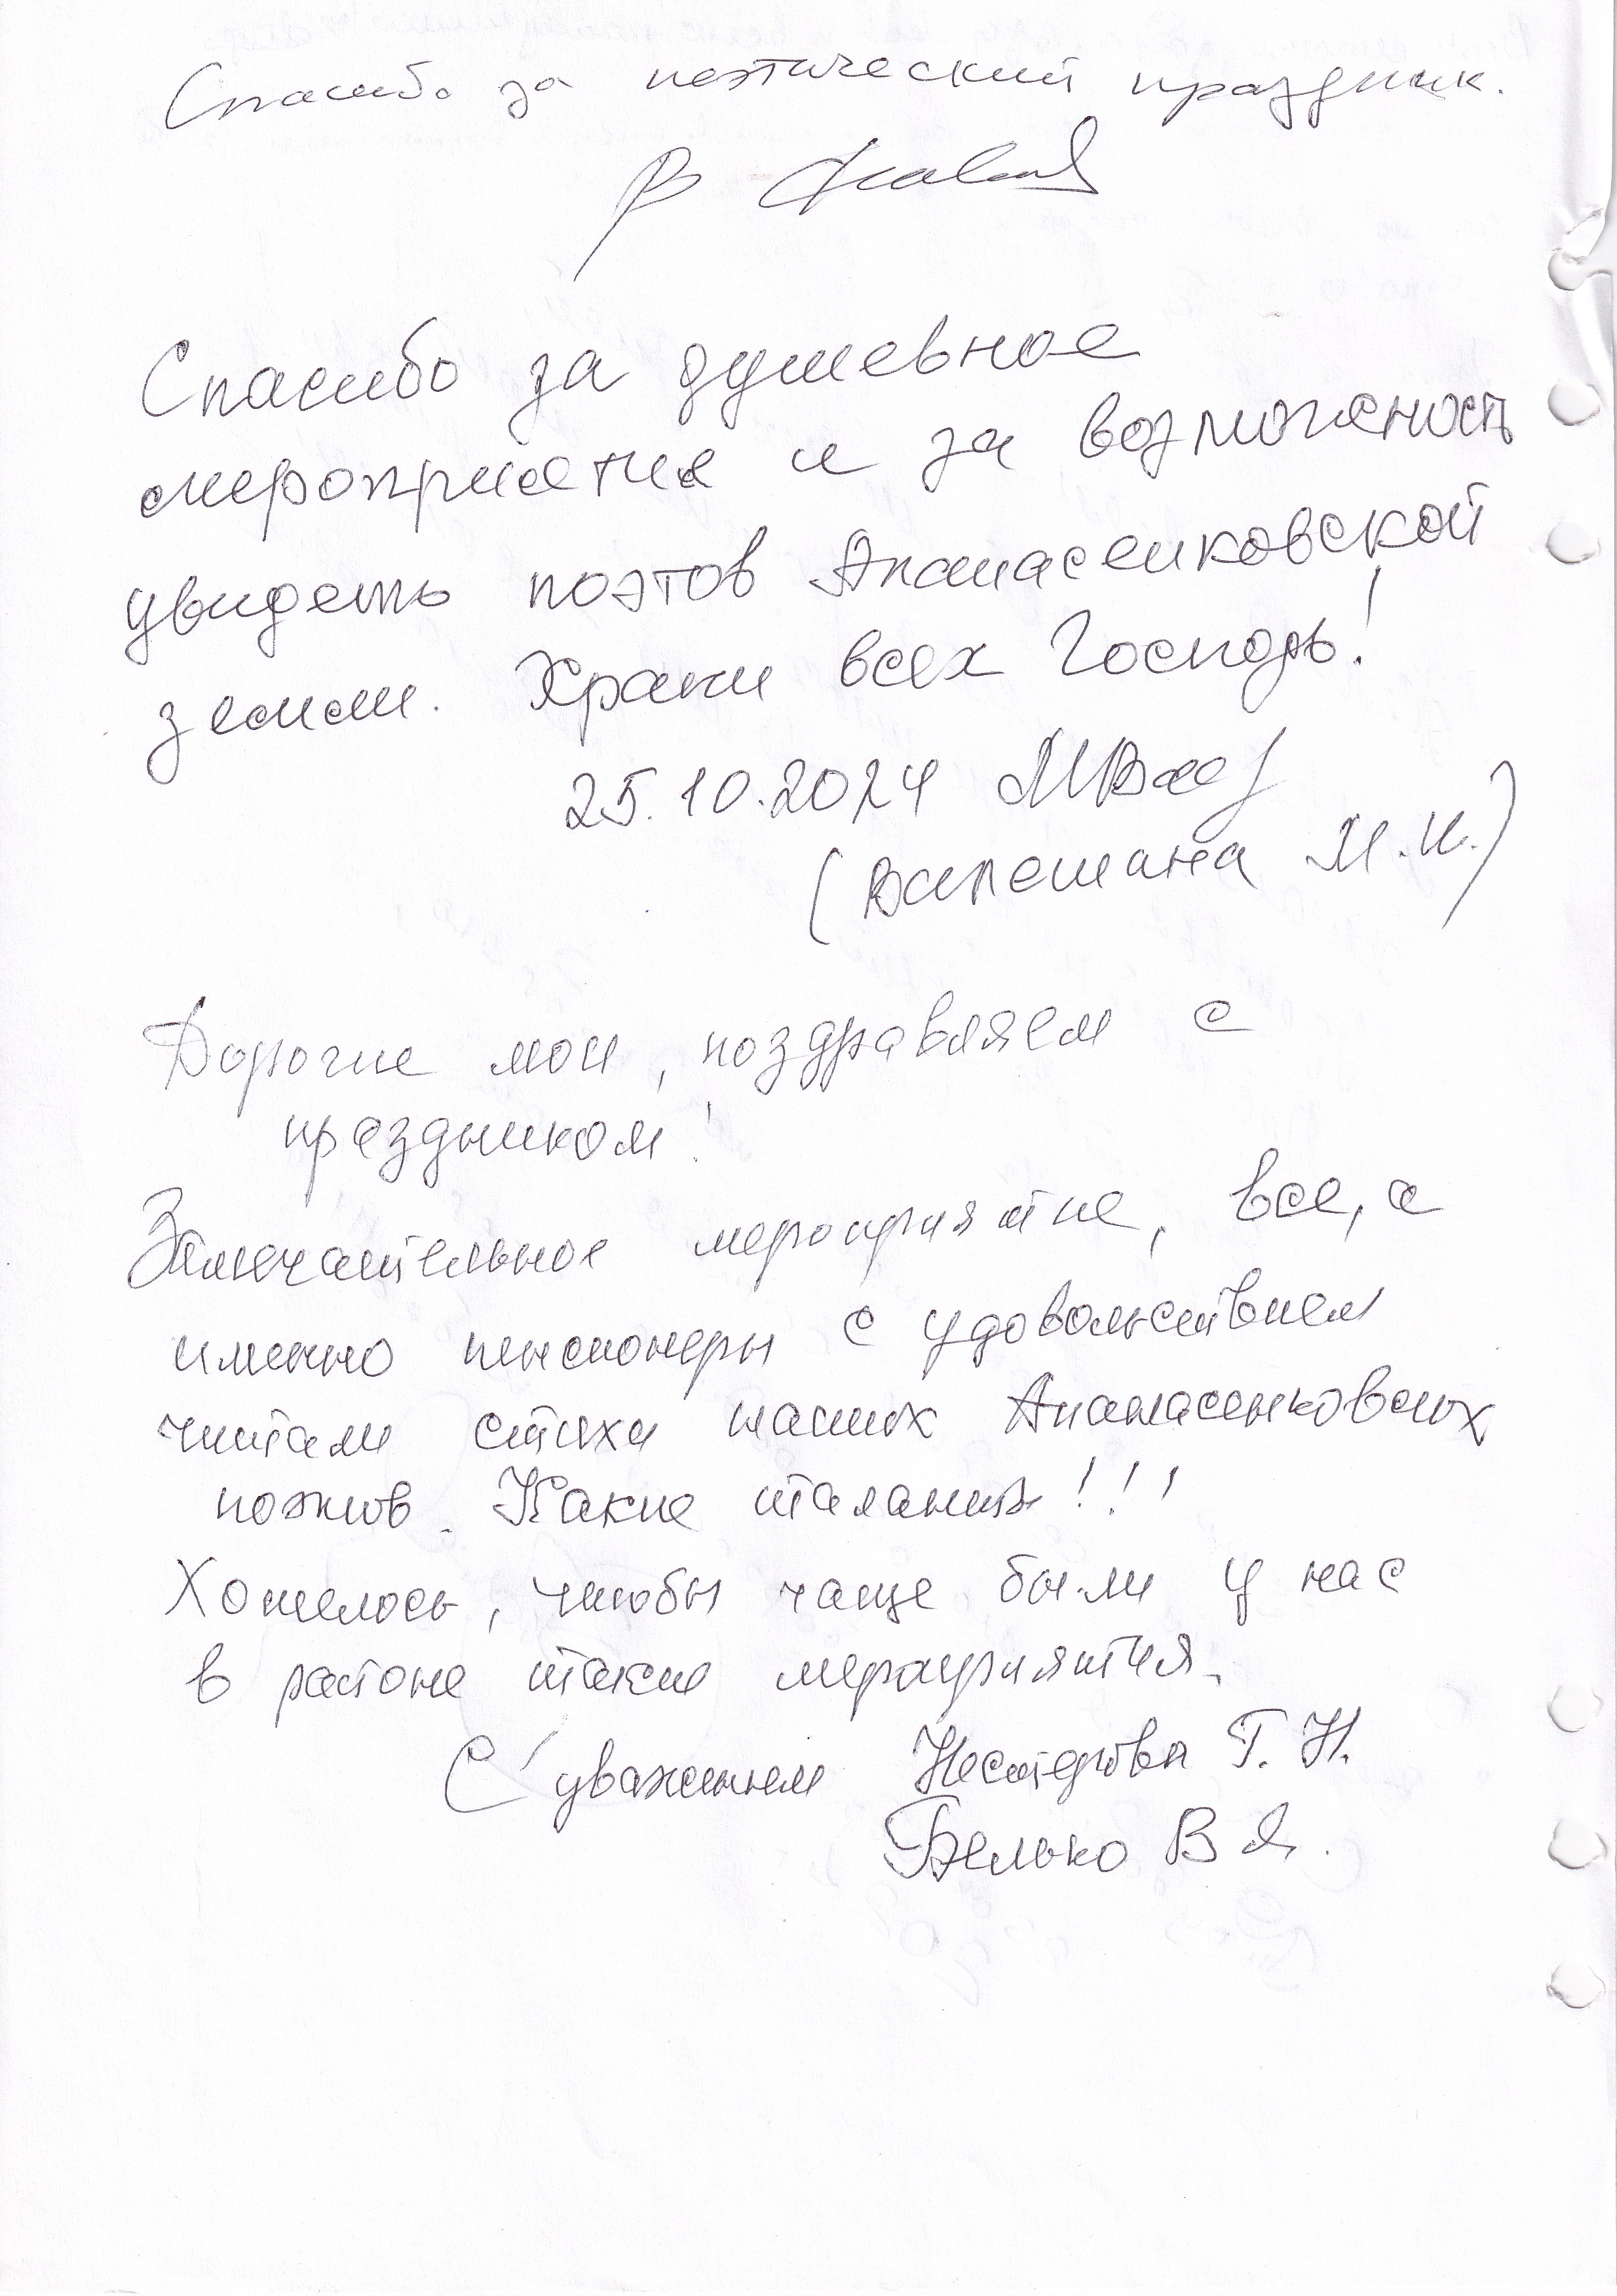 Спасибо за поэтический праздник.
Спасибо за душевное
мероприятие и за возможность
увидеть поэтов Апанасенковской
земли. Храни всех Господь!
25.10.2024
М.И.)
Дорогие мои, поздравляем с
праздником!
Замечательное мероприятие, все, а
именно пенсионеры с удовольствием
читали стихи наших Апанасенковских
поэтов. Какие таланты!!!
Хотелось, чтобы чаще были у нас
в районе такие мероприятия.
С уважением Нестерова Г. Н.
Белько В Я.